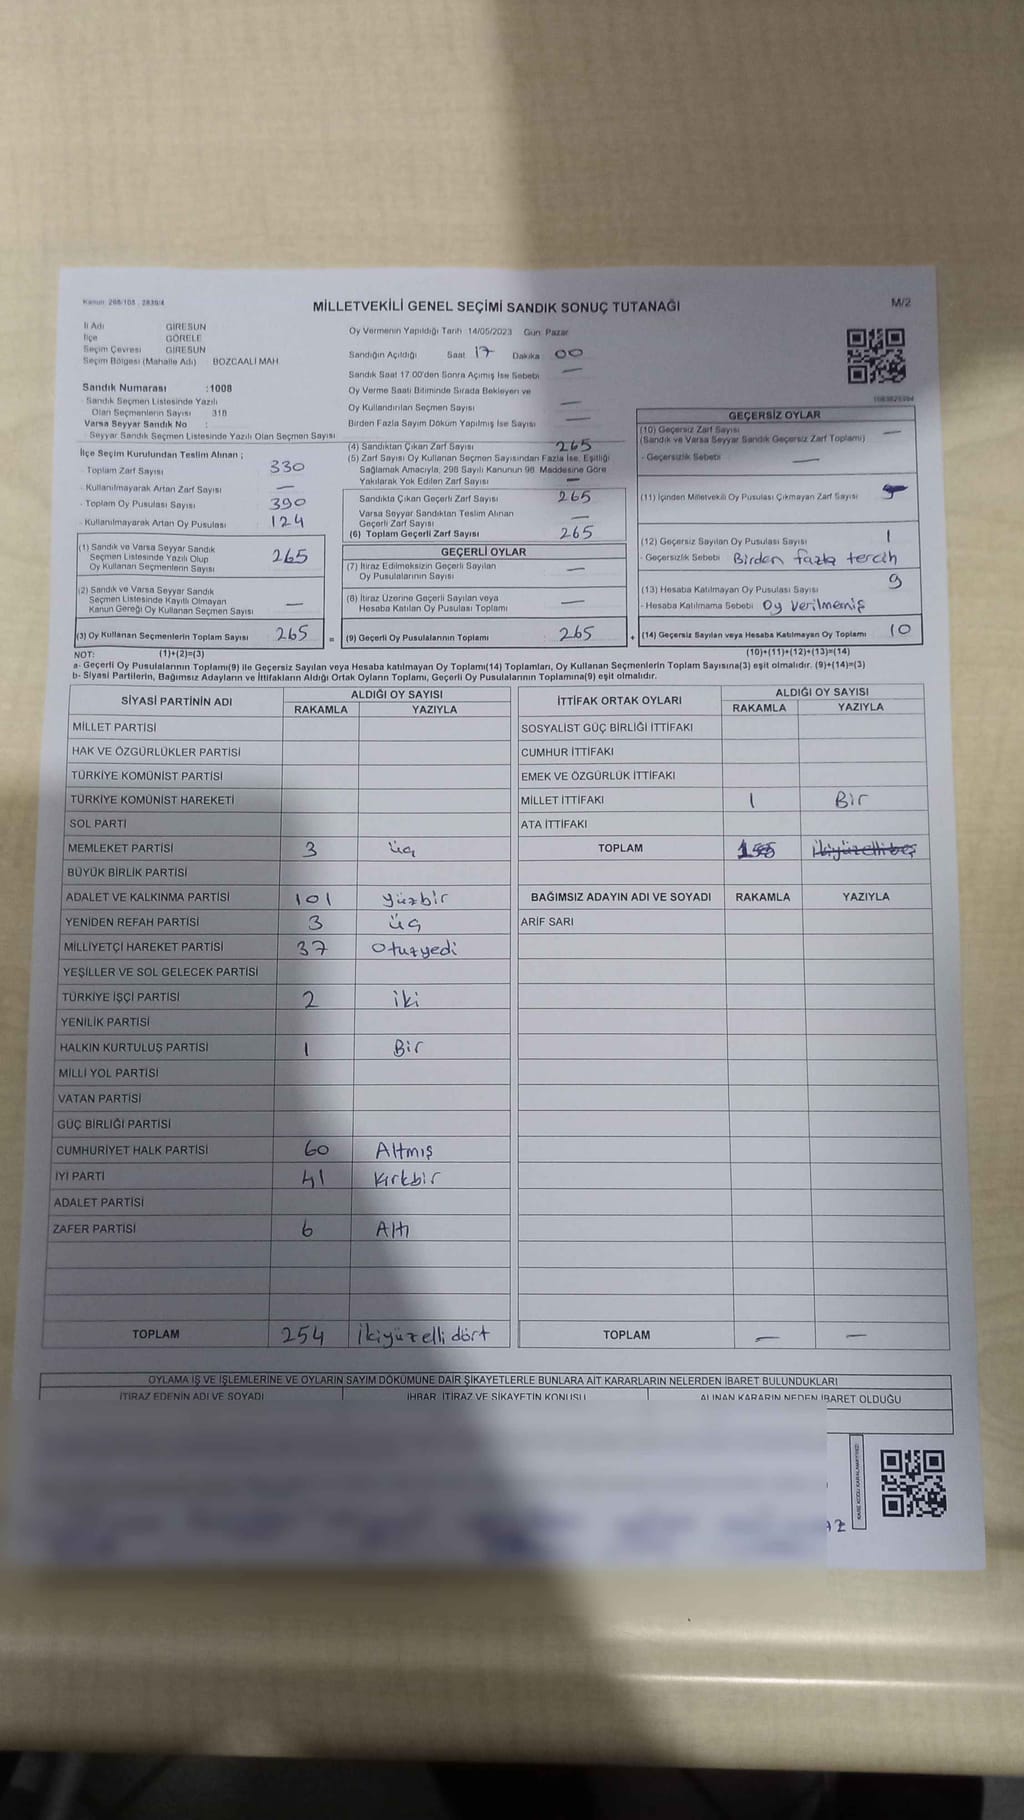 Kanun: 298/105 , 2839/4
MİLLETVEKİLİ GENEL SEÇİMİ SANDIK SONUÇ TUTANAĞI
M/2
İl Adı GİRESUN
İlçe GÖRELE
Seçim Çevresi GİRESUN
Seçim Bölgesi (Mahalle Adı) BOZCAALİ MAH
Sandık Numarası :1008
Sandık Seçmen Listesinde Yazılı
Olan Seçmenlerin Sayısı 318
Varsa Seyyar Sandık No :
- Seyyar Sandık Seçmen Listesinde Yazılı Olan Seçmen Sayısı
İlçe Seçim Kurulundan Teslim Alınan ;
- Toplam Zarf Sayısı 330
- Kullanılmayarak Artan Zarf Sayısı —
- Toplam Oy Pusulası Sayısı 390
- Kullanılmayarak Artan Oy Pusulası 124
(1) Sandık ve Varsa Seyyar Sandık
Seçmen Listesinde Yazılı Olup
Oy Kullanan Seçmenlerin Sayısı 265
(2) Sandık ve Varsa Seyyar Sandık
Seçmen Listesinde Kayıtlı Olmayan
Kanun Gereği Oy Kullanan Seçmen Sayısı —
(3) Oy Kullanan Seçmenlerin Toplam Sayısı 265
NOT: (1)+(2)=(3)
Oy Vermenin Yapıldığı Tarih 14/05/2023 Gün: Pazar
Sandığın Açıldığı Saat 17 Dakika 00
Sandık Saat 17.00'den Sonra Açılmış İse Sebebi —
Oy Verme Saati Bitiminde Sırada Bekleyen ve
Oy Kullandırılan Seçmen Sayısı —
Birden Fazla Sayım Döküm Yapılmış İse Sayısı —
(4) Sandıktan Çıkan Zarf Sayısı 265
(5) Zarf Sayısı Oy Kullanan Seçmen Sayısından Fazla İse, Eşitliği
Sağlamak Amacıyla, 298 Sayılı Kanunun 98. Maddesine Göre
Yakılarak Yok Edilen Zarf Sayısı —
Sandıkta Çıkan Geçerli Zarf Sayısı 265
Varsa Seyyar Sandıktan Teslim Alınan
Geçerli Zarf Sayısı —
(6) Toplam Geçerli Zarf Sayısı 265
GEÇERLİ OYLAR
(7) İtiraz Edilmeksizin Geçerli Sayılan
Oy Pusulalarının Sayısı —
(8) İtiraz Üzerine Geçerli Sayılan veya
Hesaba Katılan Oy Pusulası Toplamı —
= (9) Geçerli Oy Pusulalarının Toplamı 265 +
GEÇERSİZ OYLAR
(10) Geçersiz Zarf Sayısı —
(Sandık ve Varsa Seyyar Sandık Geçersiz Zarf Toplamı)
- Geçersizlik Sebebi —
(11) İçinden Milletvekili Oy Pusulası Çıkmayan Zarf Sayısı
(12) Geçersiz Sayılan Oy Pusulası Sayısı 1
- Geçersizlik Sebebi Birden fazla tercih
(13) Hesaba Katılmayan Oy Pusulası Sayısı 9
- Hesaba Katılmama Sebebi Oy verilmemiş
(14) Geçersiz Sayılan veya Hesaba Katılmayan Oy Toplamı 10
(10)+(11)+(12)+(13)=(14)
a- Geçerli Oy Pusulalarının Toplamı(9) ile Geçersiz Sayılan veya Hesaba katılmayan Oy Toplamı(14) Toplamları, Oy Kullanan Seçmenlerin Toplam Sayısına(3) eşit olmalıdır. (9)+(14)=(3)
b- Siyasi Partilerin, Bağımsız Adayların ve İttifakların Aldığı Ortak Oyların Toplamı, Geçerli Oy Pusulalarının Toplamına(9) eşit olmalıdır.
SİYASİ PARTİNİN ADI ALDIĞI OY SAYISI
RAKAMLA YAZIYLA
MİLLET PARTİSİ
HAK VE ÖZGÜRLÜKLER PARTİSİ
TÜRKİYE KOMÜNİST PARTİSİ
TÜRKİYE KOMÜNİST HAREKETİ
SOL PARTİ
MEMLEKET PARTİSİ 3 üç
BÜYÜK BİRLİK PARTİSİ
ADALET VE KALKINMA PARTİSİ 101 yüzbir
YENİDEN REFAH PARTİSİ 3 üç
MİLLİYETÇİ HAREKET PARTİSİ 37 otuzyedi
YEŞİLLER VE SOL GELECEK PARTİSİ
TÜRKİYE İŞÇİ PARTİSİ 2 iki
YENİLİK PARTİSİ
HALKIN KURTULUŞ PARTİSİ 1 Bir
MİLLİ YOL PARTİSİ
VATAN PARTİSİ
GÜÇ BİRLİĞİ PARTİSİ
CUMHURİYET HALK PARTİSİ 60 Altmış
İYİ PARTİ 41 Kırkbir
ADALET PARTİSİ
ZAFER PARTİSİ 6 Altı
TOPLAM 254 İkiyüzelli dört
İTTİFAK ORTAK OYLARI ALDIĞI OY SAYISI
RAKAMLA YAZIYLA
SOSYALİST GÜÇ BİRLİĞİ İTTİFAKI
CUMHUR İTTİFAKI
EMEK VE ÖZGÜRLÜK İTTİFAKI
MİLLET İTTİFAKI 1 Bir
ATA İTTİFAKI
TOPLAM ikiyüzellibeş
BAĞIMSIZ ADAYIN ADI VE SOYADI RAKAMLA YAZIYLA
ARİF SARI
TOPLAM — —
OYLAMA İŞ VE İŞLEMLERİNE VE OYLARIN SAYIM DÖKÜMÜNE DAİR ŞİKAYETLERLE BUNLARA AİT KARARLARIN NELERDEN İBARET BULUNDUKLARI
İTİRAZ EDENİN ADI VE SOYADI İHBAR, İTİRAZ VE ŞİKAYETİN KONUSU ALINAN KARARIN NEDEN İBARET OLDUĞU
AZ